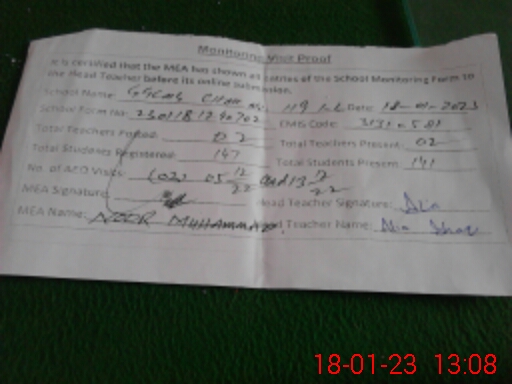 Monitoring Visit Proof
It is certified that the MEA has shown all entries of the School Monitoring Form to
the Head Teacher before its online submission.
School Name: GGCMS CHAK No. 119 Date: 18-01-2023
School Form No: EMIS Code:
Total Teachers Posted: 02 Total Teachers Present: 02
Total Students Registered: 147 Total Students Present: 141
No. of AEO Visits: (02) 05 12/22 and 13 12/22
MEA Signature: Head Teacher Signature:
MEA Name: NOOR MUHAMMAD Head Teacher Name:
18-01-23 13:08